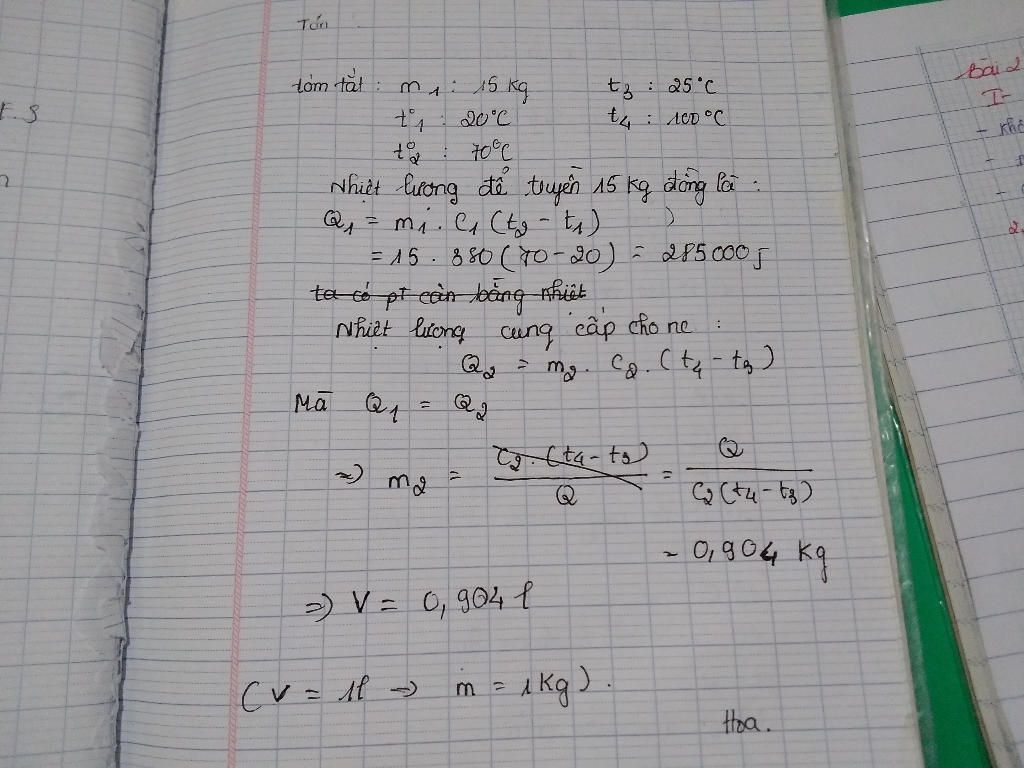 Tớn
tóm tắt : m1 : 15 kg t3 : 25°C
t°1 : 20°C t4 : 100°C
t°2 : 70°C
Nhiệt lượng để truyền 15 kg đồng là :
Q1 = m1 . C1 (t2 - t1)
= 15 . 380 (70 - 20) = 285000 J
ta có pT cân bằng nhiệt
Nhiệt lượng cung cấp cho nc :
Q2 = m2 . C2 . (t4 - t3)
Mà Q1 = Q2
=> m2 = C2 . (t4 - t3) / Q = Q / C2 (t4 - t3)
= 0,904 kg
=> V = 0,904 l
(V = 1l => m = 1 kg) .
Hoa.
bài 2
I-
- khô
2.